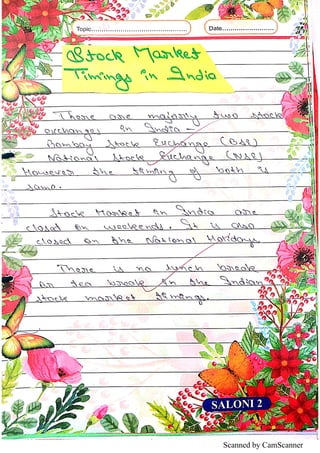 Topic
Date
Stock Market
Timings in India
There are majorly two stock
exchanges in India -
Bombay Stock Exchange (BSE)
National Stock Exchange (NSE)
However the timing of both is
same.
Stock Market in India are
closed on weekends. It is also
closed on the National Holidays
There is no lunch break
or tea break in the Indian
stock market timings.
SALONI 2
Scanned by CamScanner